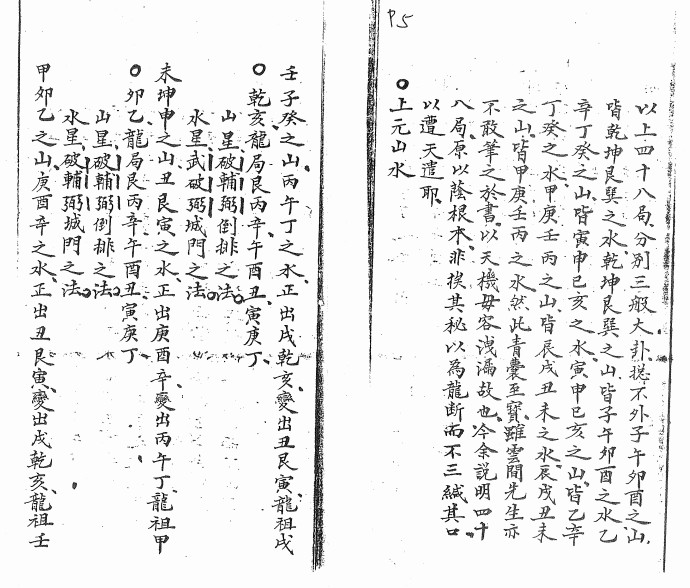 P5
以上四十八局分別三般大卦揔不外子午卯酉之山
皆乾坤艮巽之水乾坤艮巽之山皆子午卯酉之水乙
辛丁癸之山皆寅申巳亥之水寅申巳亥之山皆乙辛
丁癸之水甲庚壬丙之山皆辰戌丑未之水辰戌丑未
之山皆甲庚壬丙之水然此青囊至寶雖雲間先生亦
不敢筆之於書以天機毋容洩漏故也今余説明四十
八局原以蔭根本非挨其秘以為龍断而不三緘其口
以遭天譴耶
○上元山水
壬子癸之山丙午丁之水正出戌乾亥變出丑艮寅龍祖戌
○乾亥龍局艮丙辛午酉丑寅庚丁
山星破輔弼倒排之法
水星武破弼城門之法
未坤申之山丑艮寅之水正出庚酉辛變出丙午丁龍祖甲
○卯乙龍局艮丙辛午酉丑寅庚丁
山星破輔弼倒排之法
水星破輔弼城門之法
甲卯乙之山庚酉辛之水正出丑艮寅變出戌乾亥龍祖壬